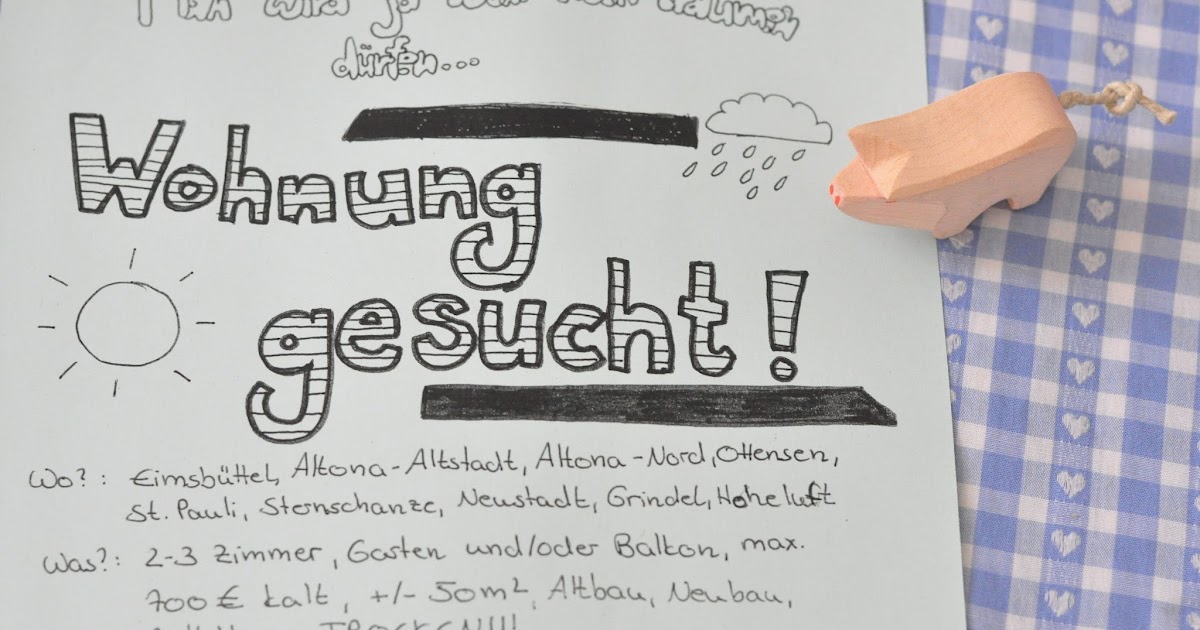 Man wird ja wohl noch träumen
dürfen...
Wohnung
gesucht!
Wo?: Eimsbüttel, Altona-Altstadt, Altona-Nord, Ottensen,
St. Pauli, Sternschanze, Neustadt, Grindel, Hoheluft
Was?: 2-3 Zimmer, Garten und/oder Balkon, max.
700 € kalt, +/- 50m², Altbau, Neubau,
TROCKEN!!!!